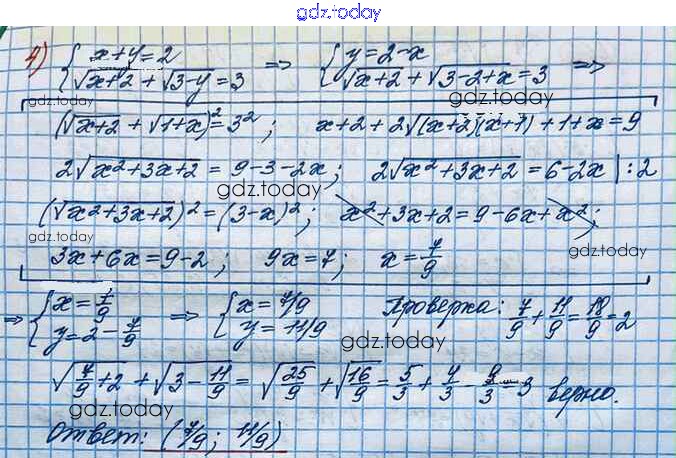 gdz.today
4) { x+y=2 => { y=2-x
{ √x+2 + √3-y = 3 { √x+2 + √3-2+x = 3 =>
gdz.today
gdz.today
gdz.today
(√x+2 + √1+x)² = 3²; x+2+2√(x+2)(x+1) + 1+x = 9
2√x²+3x+2 = 9-3-2x; 2√x²+3x+2 = 6-2x | :2
gdz.today
(√x²+3x+2)² = (3-x)²; x²+3x+2 = 9-6x+x²;
gdz.today
gdz.today
3x+6x=9-2; 9x=7; x=7/9
=> { x=7/9 => { x=7/9 Проверка: 7/9+11/9=18/9=2
{ y=2-7/9 { y=11/9
gdz.today
√7/9+2 + √3-11/9 = √25/9 + √16/9 = 5/3 + 4/3 = 9/3 = 3 верно.
gdz.today
Ответ: (7/9; 11/9)